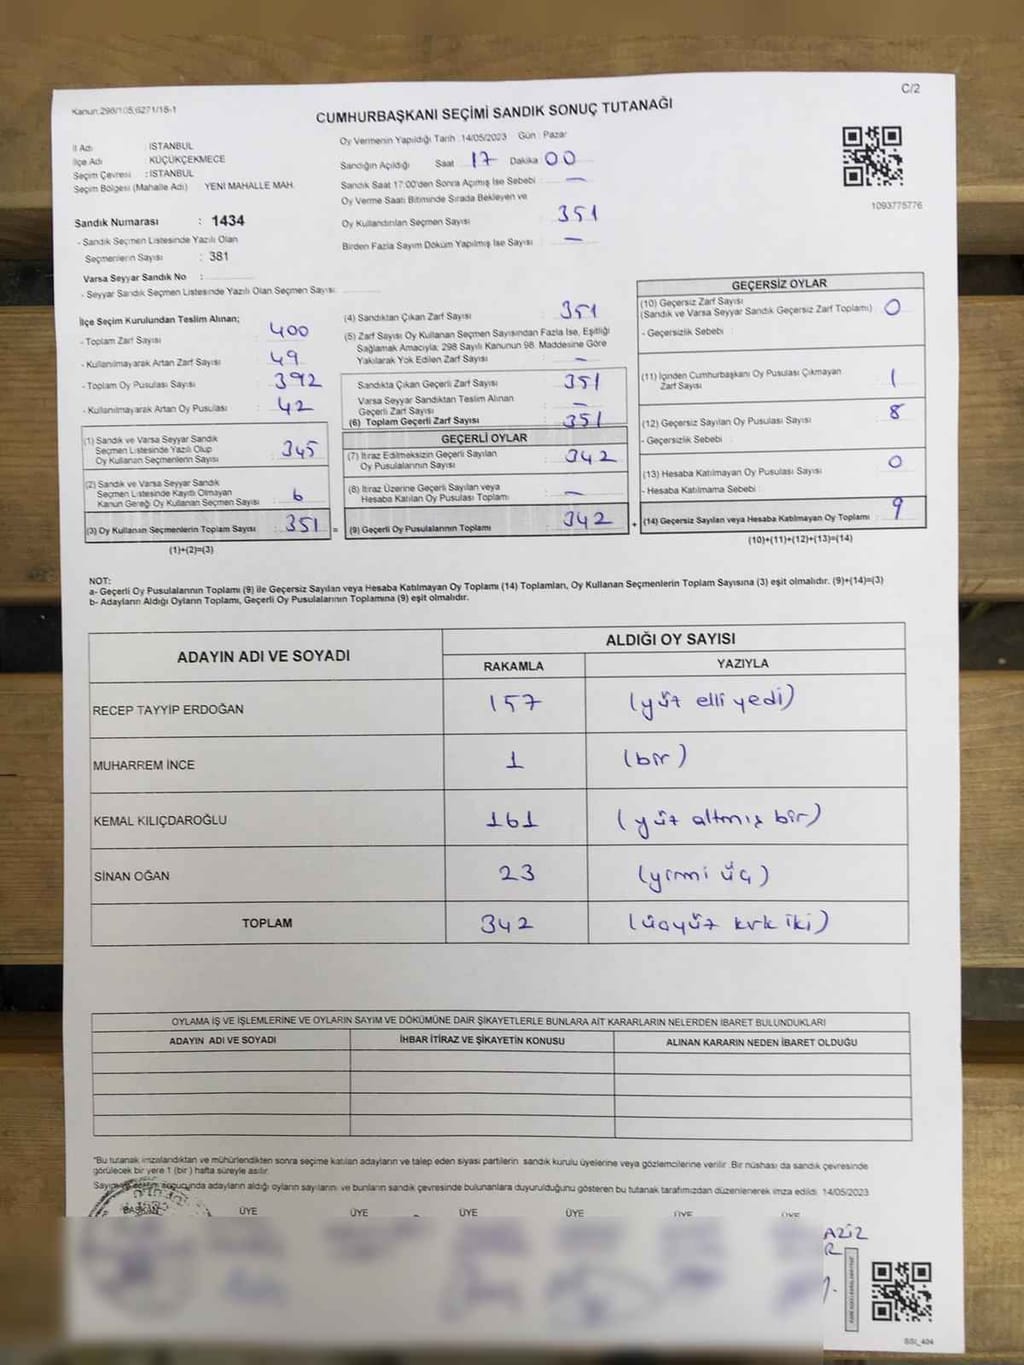 C/2
Kanun:298/105,6271/15-1
CUMHURBAŞKANI SEÇİMİ SANDIK SONUÇ TUTANAĞI
İl Adı : İSTANBUL
İlçe Adı : KÜÇÜKÇEKMECE
Seçim Çevresi : İSTANBUL
Seçim Bölgesi (Mahalle Adı) YENİ MAHALLE MAH.
Sandık Numarası : 1434
- Sandık Seçmen Listesinde Yazılı Olan
Seçmenlerin Sayısı : 381
Varsa Seyyar Sandık No :
- Seyyar Sandık Seçmen Listesinde Yazılı Olan Seçmen Sayısı:
Oy Vermenin Yapıldığı Tarih :14/05/2023 Gün : Pazar
Sandığın Açıldığı Saat 17 Dakika 00
Sandık Saat 17:00'den Sonra Açımış İse Sebebi : —
Oy Verme Saati Bitiminde Sırada Bekleyen ve
Oy Kullandırılan Seçmen Sayısı 351
Birden Fazla Sayım Döküm Yapılmış İse Sayısı : —
1093775776
İlçe Seçim Kurulundan Teslim Alınan;
- Toplam Zarf Sayısı : 400
- Kullanılmayarak Artan Zarf Sayısı : 49
- Toplam Oy Pusulası Sayısı : 392
- Kullanılmayarak Artan Oy Pusulası : 42
(1) Sandık ve Varsa Seyyar Sandık
Seçmen Listesinde Yazılı Olup
Oy Kullanan Seçmenlerin Sayısı : 345
(2) Sandık ve Varsa Seyyar Sandık
Seçmen Listesinde Kayıtlı Olmayan
Kanun Gereği Oy Kullanan Seçmen Sayısı : 6
(3) Oy Kullanan Seçmenlerin Toplam Sayısı : 351 =
(1)+(2)=(3)
(4) Sandıktan Çıkan Zarf Sayısı : 351
(5) Zarf Sayısı Oy Kullanan Seçmen Sayısından Fazla İse, Eşitliği
Sağlamak Amacıyla; 298 Sayılı Kanunun 98. Maddesine Göre
Yakılarak Yok Edilen Zarf Sayısı : —
Sandıkta Çıkan Geçerli Zarf Sayısı : 351
Varsa Seyyar Sandıktan Teslim Alınan
Geçerli Zarf Sayısı : —
(6) Toplam Geçerli Zarf Sayısı : 351
GEÇERLİ OYLAR
(7) İtiraz Edilmeksizin Geçerli Sayılan
Oy Pusulalarının Sayısı : 342
(8) İtiraz Üzerine Geçerli Sayılan veya
Hesaba Katılan Oy Pusulası Toplamı : —
(9) Geçerli Oy Pusulalarının Toplamı : 342 +
GEÇERSİZ OYLAR
(10) Geçersiz Zarf Sayısı
(Sandık ve Varsa Seyyar Sandık Geçersiz Zarf Toplamı) : 0
- Geçersizlik Sebebi :
(11) İçinden Cumhurbaşkanı Oy Pusulası Çıkmayan
Zarf Sayısı : 1
(12) Geçersiz Sayılan Oy Pusulası Sayısı : 8
- Geçersizlik Sebebi :
(13) Hesaba Katılmayan Oy Pusulası Sayısı : 0
- Hesaba Katılmama Sebebi :
(14) Geçersiz Sayılan veya Hesaba Katılmayan Oy Toplamı : 9
(10)+(11)+(12)+(13)=(14)
NOT:
a- Geçerli Oy Pusulalarının Toplamı (9) ile Geçersiz Sayılan veya Hesaba Katılmayan Oy Toplamı (14) Toplamları, Oy Kullanan Seçmenlerin Toplam Sayısına (3) eşit olmalıdır. (9)+(14)=(3)
b- Adayların Aldığı Oyların Toplamı, Geçerli Oy Pusulalarının Toplamına (9) eşit olmalıdır.
ADAYIN ADI VE SOYADI ALDIĞI OY SAYISI
RAKAMLA YAZIYLA
RECEP TAYYİP ERDOĞAN 157 (yüz elli yedi)
MUHARREM İNCE 1 (bir)
KEMAL KILIÇDAROĞLU 161 (yüz altmış bir)
SİNAN OĞAN 23 (yirmi üç)
TOPLAM 342 (üçyüz kırk iki)
OYLAMA İŞ VE İŞLEMLERİNE VE OYLARIN SAYIM VE DÖKÜMÜNE DAİR ŞİKAYETLERLE BUNLARA AİT KARARLARIN NELERDEN İBARET BULUNDUKLARI
ADAYIN ADI VE SOYADI İHBAR İTİRAZ VE ŞİKAYETİN KONUSU ALINAN KARARIN NEDEN İBARET OLDUĞU
"Bu tutanak imzalandıktan ve mühürlendikten sonra seçime katılan adayların ve talep eden siyasi partilerin sandık kurulu üyelerine veya gözlemcilerine verilir. Bir nüshası da sandık çevresinde
görülecek bir yere 1 (bir) hafta süreyle asılır.
sonucunda adayların aldığı oyların sayılarını ve bunların sandık çevresinde bulunanlara duyurulduğunu gösteren bu tutanak tarafımızdan düzenlenerek imza edildi. 14/05/2023
BAŞKAN ÜYE ÜYE ÜYE ÜYE ÜYE ÜYE
AZİZ
SSİ_404